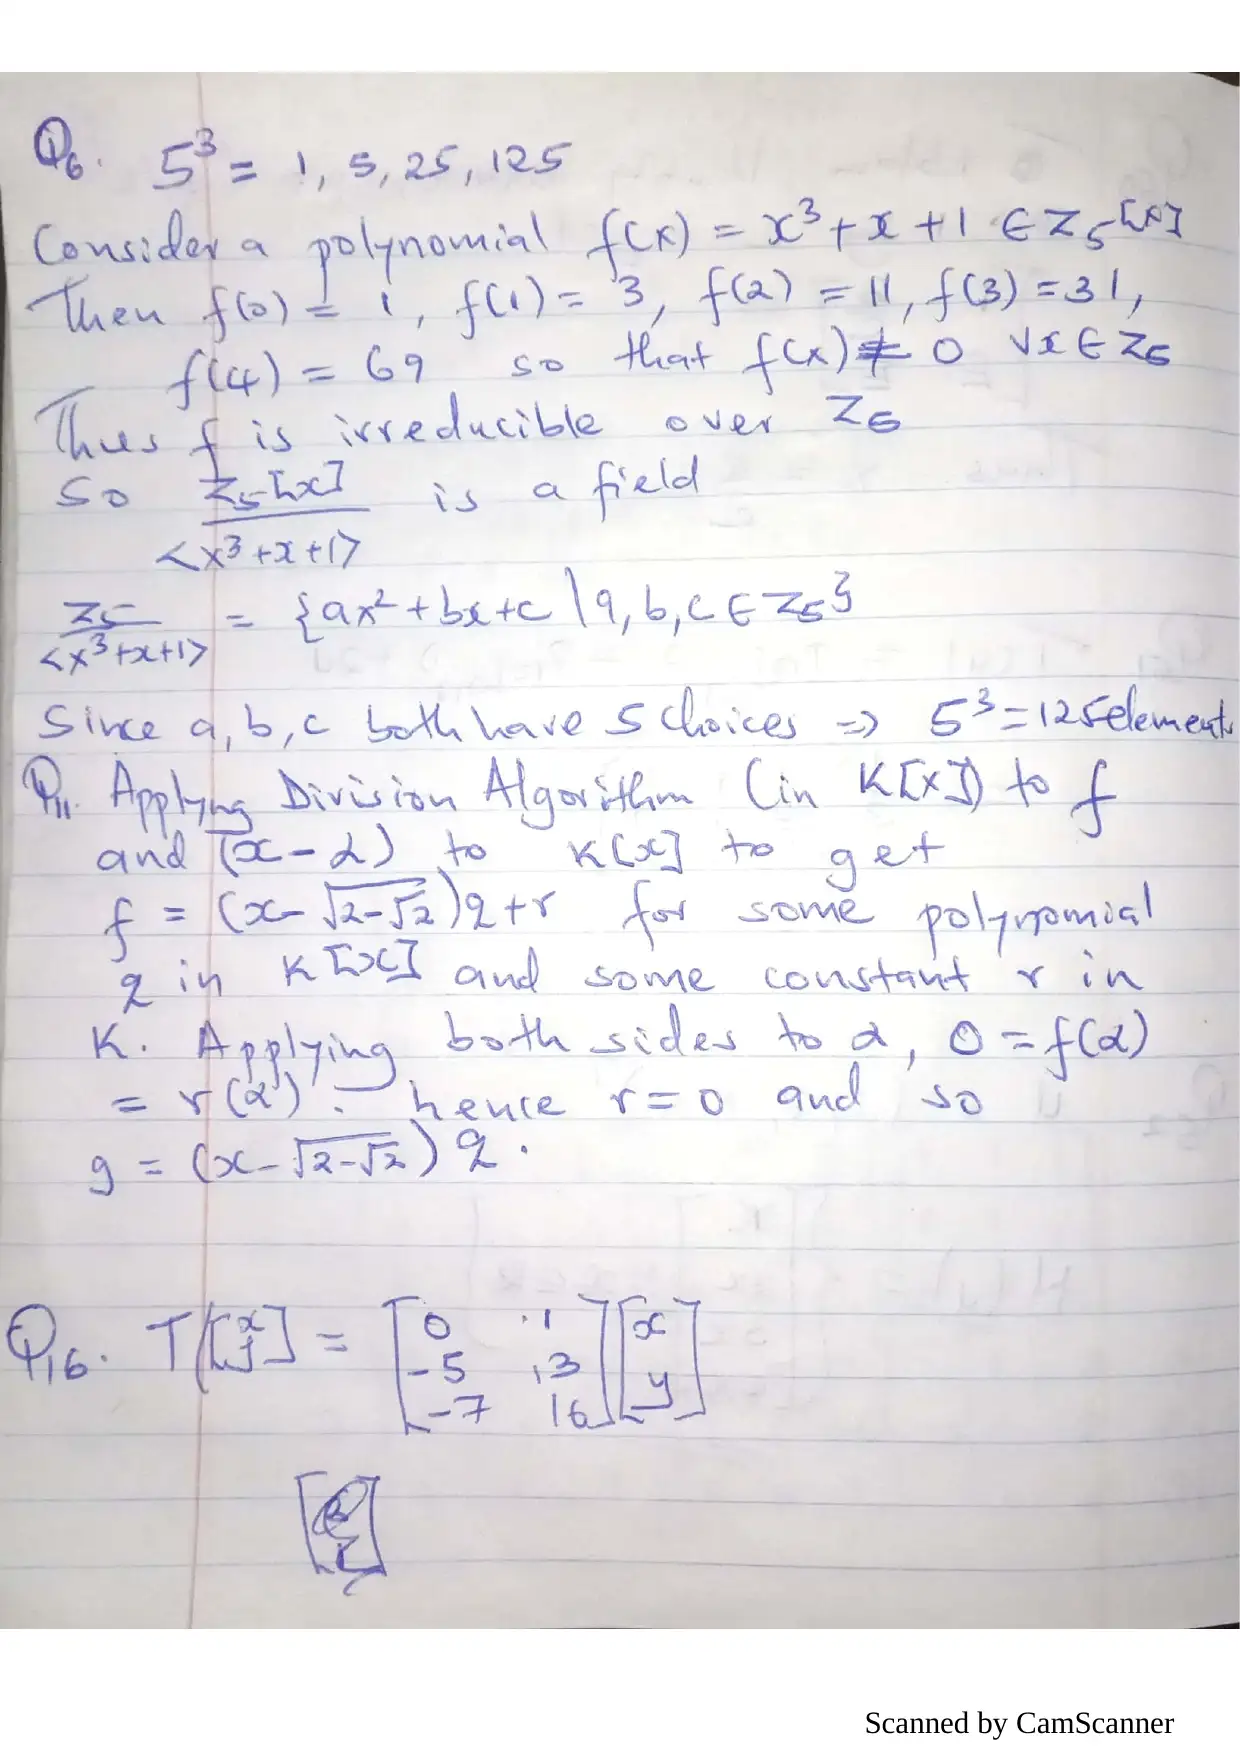 Q6. 5³ = 1, 5, 25, 125
Consider a polynomial f(x) = x³ + x + 1 ∈ Z₅[x]
Then f(0) = 1, f(1) = 3, f(2) = 11, f(3) = 31,
f(4) = 69 so that f(x) ≠ 0 ∀x ∈ Z₅
Thus f is irreducible over Z₅
So Z₅[x] is a field
<x³ + x + 1>
Z₅ = {ax² + bx + c | a, b, c ∈ Z₅}
<x³ + x + 1>
Since a, b, c both have 5 choices ⇒ 5³ = 125 elements
Q11. Applying Division Algorithm (in K[x]) to f
and (x - α) to K[x] to get
f = (x - √2-√2) q + r for some polynomial
q in K[x] and some constant r in
K. Applying both sides to α, 0 = f(α)
= r(α). hence r = 0 and so
g = (x - √2-√2) q.
Q16. T[x y] = [0 1] [x]
[-5 13] [y]
[-7 16]
Scanned by CamScanner